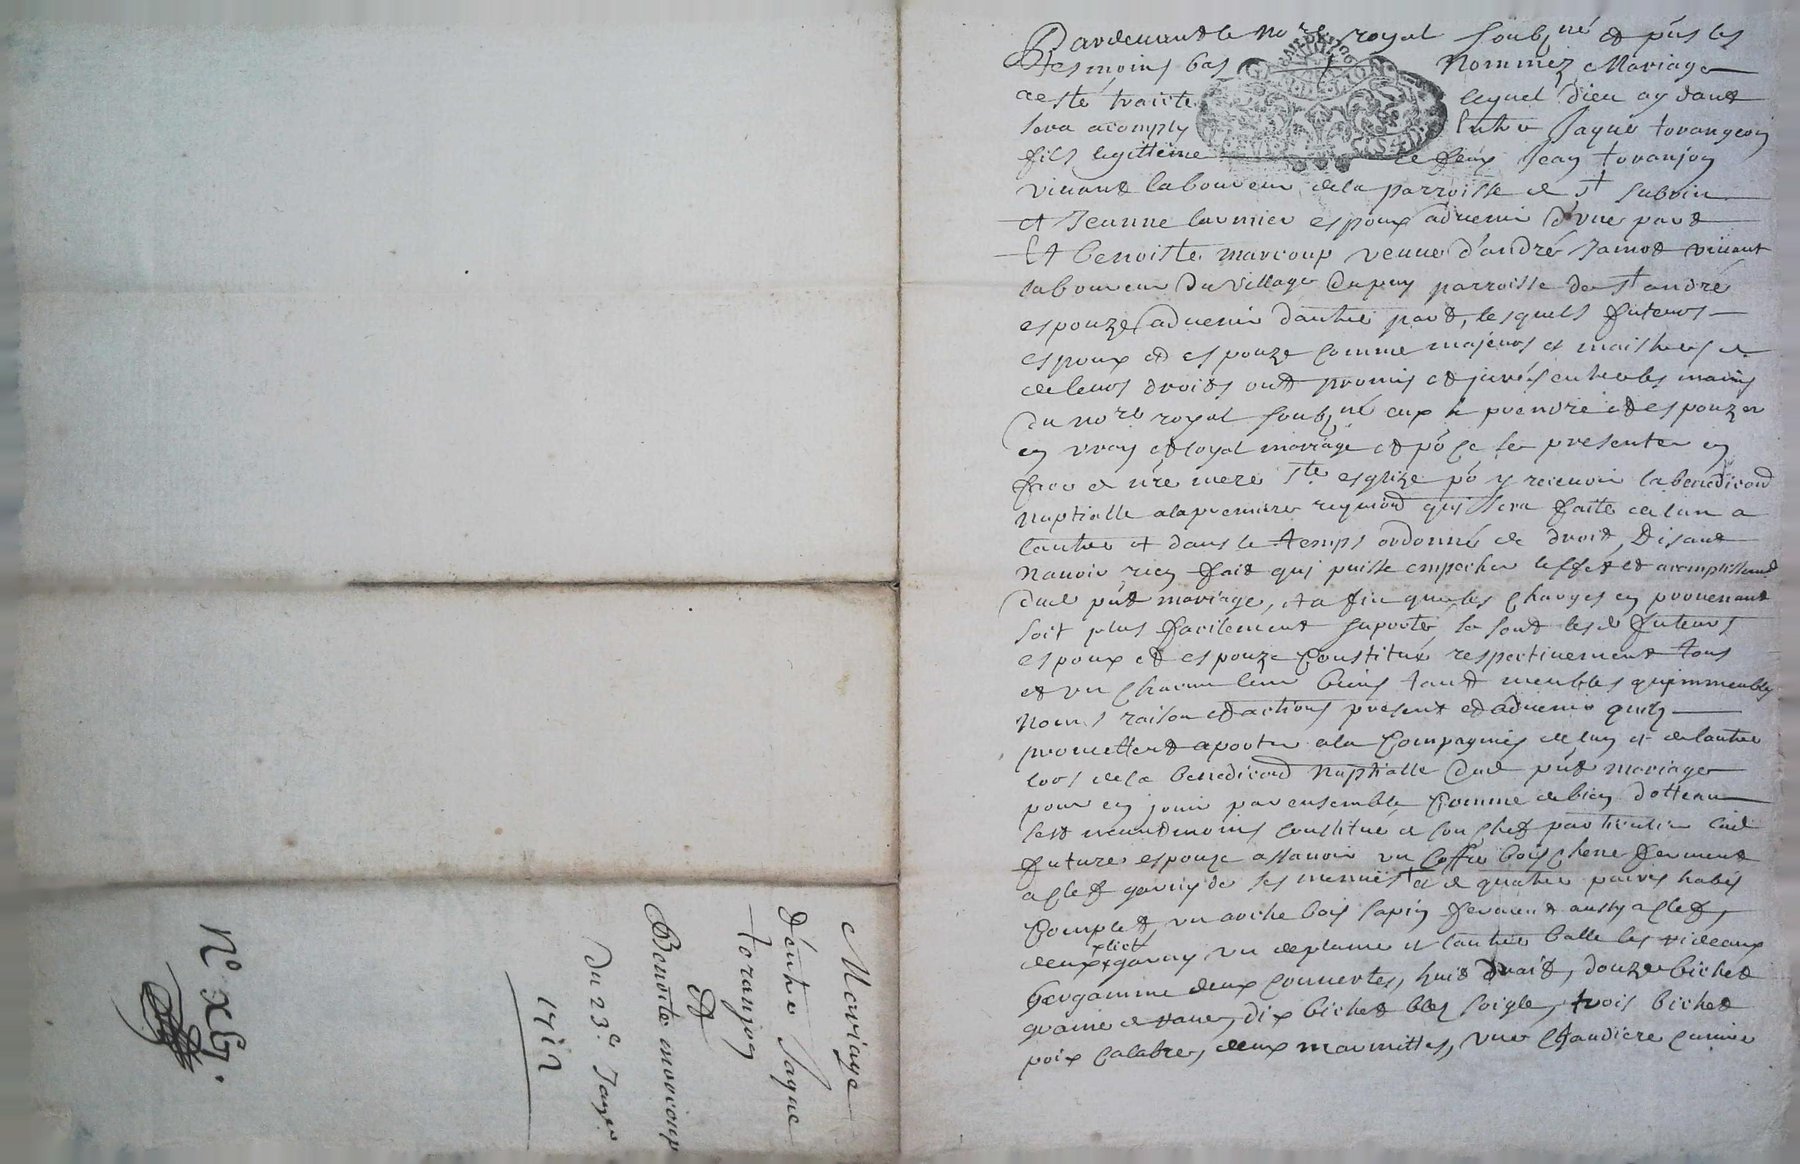 Mariage
d'entre Jaque
toranjon
et
Benoite marcoup
Du 23e Janer
1712
No
Pardevant le nore royal soubzné et pñs les
tesmoins bas nommez Mariage
a esté traicté lequel dieu aydant
sera acomply Entre Jaques torangeon
fils legitteme de feux Jean toranjon
vivant laboureur de la parroisse de st
et Jeanne larmier espoux advenir d'une part
Et benoiste marcoup veuve d'andré Jamot vivant
laboureur du village dupuy parroisse de st andré
espouze advenir dautre part, lesquels futeurs
espoux et espouze comme majeurs et maistres de
de leurs droits ont promis et jurés entre les mains
du nore royal soubzné eux prendre et espouzer
en vray et loyal mariage et po se presenter en
face de nre mere ste esglize po y recevoir la benediõn
nuptialle a la premiere requiõn qui sera faite de lun a
lautre et dans le temps ordonné de droit, disant
navoir rien fait qui puisse empecher leffet et acomplissemt
dud pñt mariage, et a fin que les charges en provenant
soit plus facilement suporté, se sont lesd futeurs
espoux et espouze Constitué respectivement tous
et un chacun leur biens tant meubles quimmeubles
noms raison et actions present et advenir quils
promettent aporter a la Compagnies de lun et de lautre
lors de la benediõn nuptialle dud pñt mariage
pour en jouir par ensemble Comme de bien dotteau
sest neantmoins constitué de son chef particulier lad
future espouze assavoir un Coffre bois chene fermant
a clef garny de ses menues et de quatre paires habis
Complet, un arche bois sapin fermant aussy a clef,
deux lict garny un de plume et lautre balle les rideaux
bergamme deux couvertes, huit drait, douze bichet
graine de rave, dix bichet bled soigle, trois bichet
poix calabre, deux marmittes, une Chaudiere cuivre